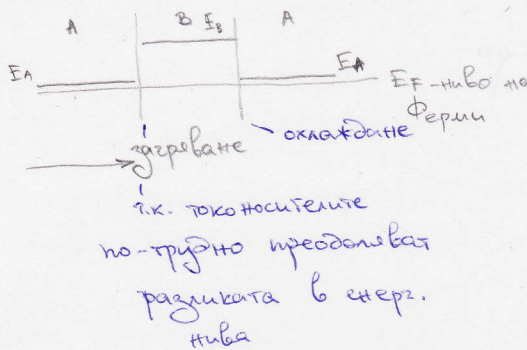 A B A
E_B
E_A E_A E_F - ниво на
Ферми
загряване охлаждане
т.к. токоносителите
по-трудно преодоляват
разликата в енерг.
нива